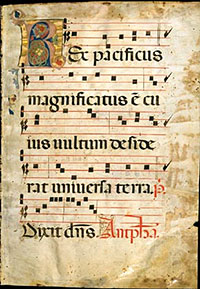 Rex pacificus
magnificatus ē cu
ius vultum deside
rat universa terra. p̄.
Dixit dn̄s. Antipha.